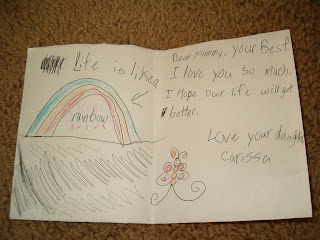 Life is like a
rainbow
Dear Mommy, your Best
I love you so much.
I Hope our life will get
better.
Love your daughter
carissa